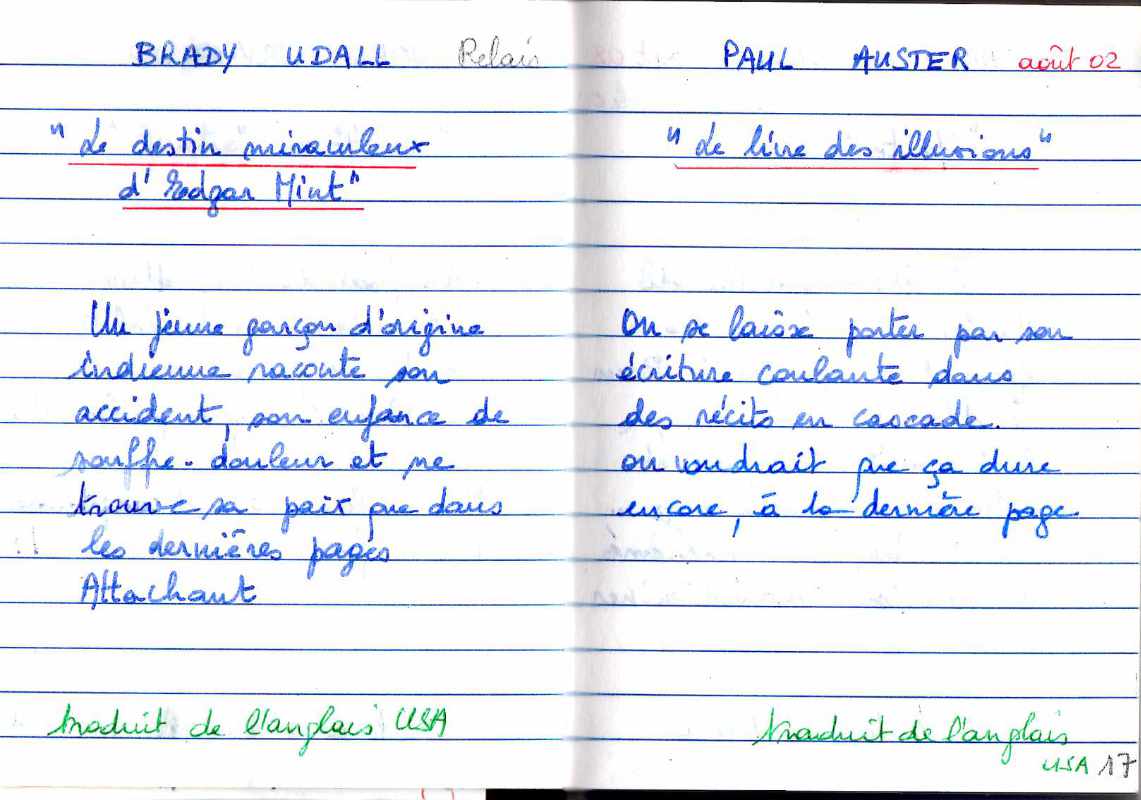 BRADY UDALL Relais
"Le destin miraculeux
d'Edgar Mint"
Un jeune garçon d'origine
indienne raconte son
accident, son enfance de
souffre-douleur et ne
trouve sa paix que dans
les dernières pages
Attachant
traduit de l'anglais USA
PAUL AUSTER août 02
"Le livre des illusions"
On se laisse porter par son
écriture coulante dans
des récits en cascade.
on voudrait que ça dure
encore, à la dernière page
traduit de l'anglais
USA 17